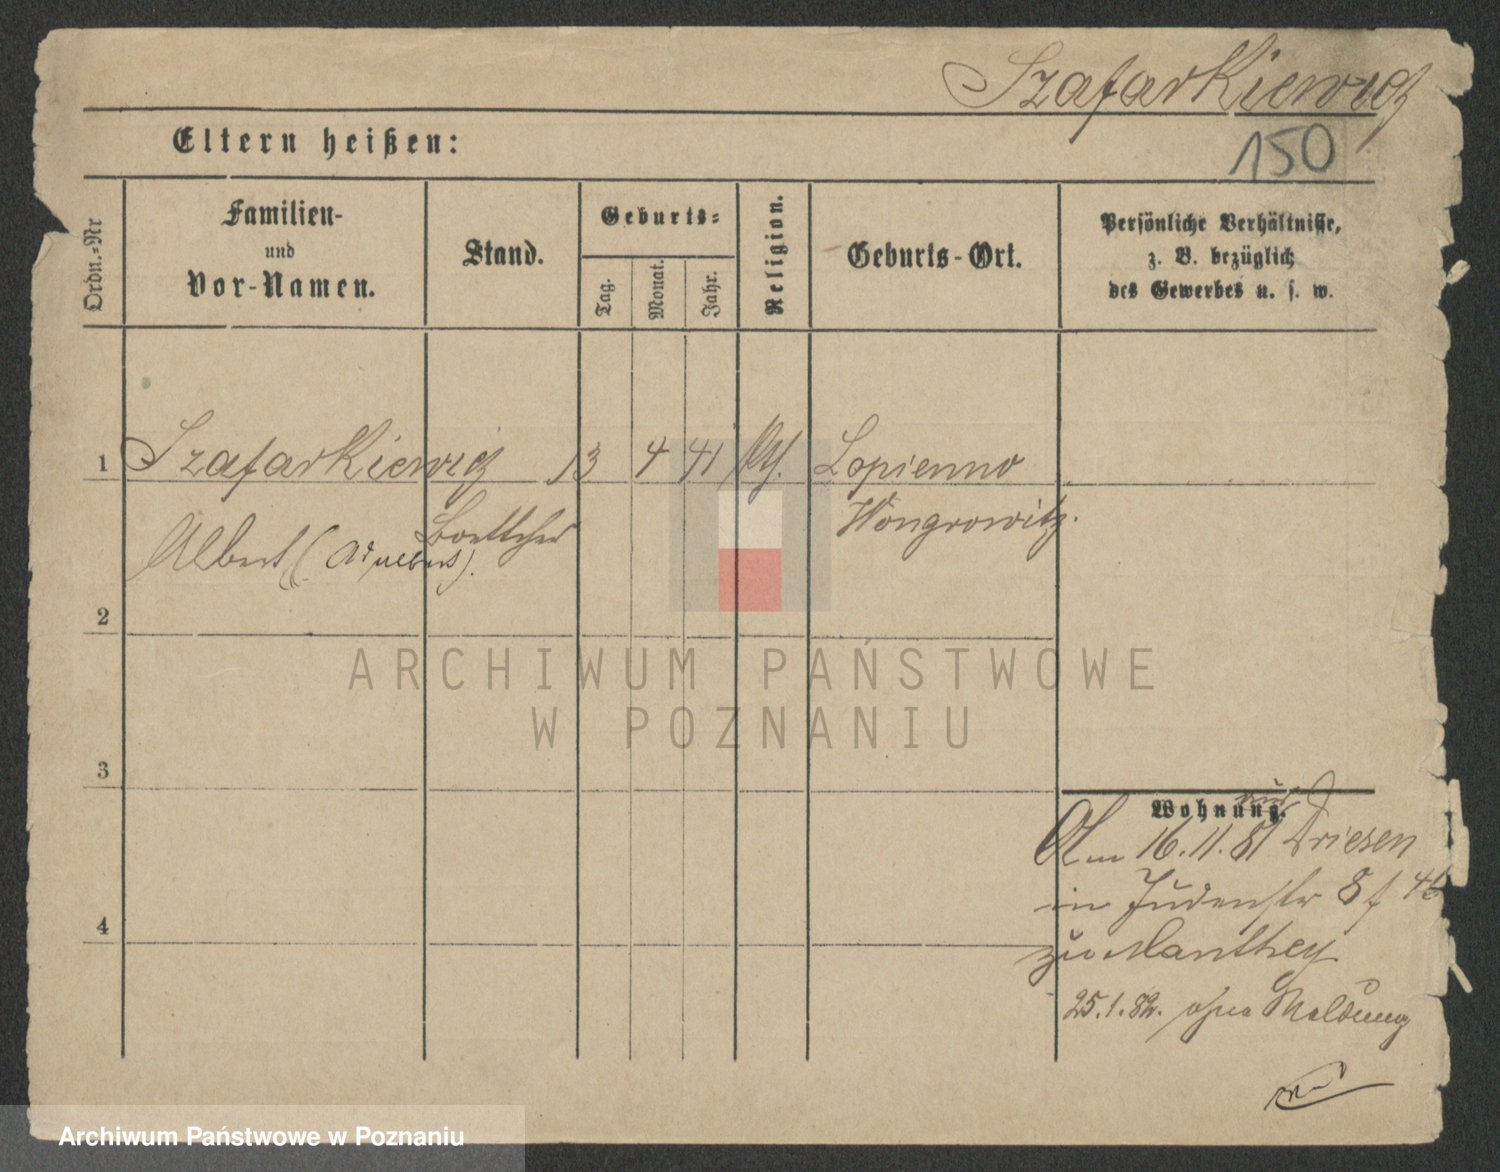 Szafarkiewicz
150
Eltern heißen:
Ordn.-Nr
Familien-
und
Vor-Namen.
Stand.
Geburts-
Tag.
Monat.
Jahr.
Religion.
Geburts-Ort.
Persönliche Verhältnisse,
z. B. bezüglich
des Gewerbes u. s. w.
1 Szafarkiewicz 13 4 41 Lopienno
Boettcher Wongrowitz.
Albert (Adalbert).
2
3
4
Wohnung.
Am 16.11.81 aus Driesen
in Judenstr 8 f
zu Manthey
25.1.82. ohne Meldung
ARCHIWUM PAŃSTWOWE
W POZNANIU
Archiwum Państwowe w Poznaniu